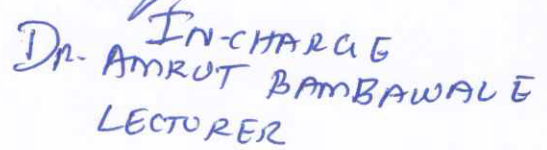 IN-CHARGE
DR. AMRUT BAMBAWALE
LECTURER